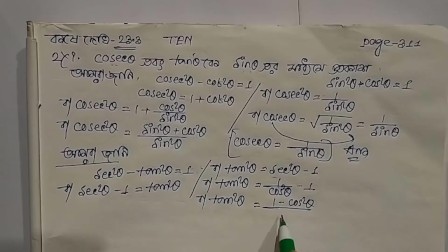 কষে দেখি-23.3 TEN page-311
2)(i) cosecθ এবং tanθ কে sinθ এর মাধ্যমে
আমরা জানি, cosec²θ - cot²θ = 1
cosec²θ = 1 + cot²θ
বা cosec²θ = 1 + cos²θ/sin²θ
বা cosec²θ = sin²θ + cos²θ/sin²θ
sin²θ + cos²θ = 1
বা cosec²θ = 1/sin²θ
বা cosecθ = √1/sin²θ = 1/sinθ
cosecθ = 1/sinθ
আমরা জানি
sec²θ - tan²θ = 1
বা sec²θ - 1 = tan²θ
বা tan²θ = sec²θ - 1
বা tan²θ = 1/cos²θ - 1
বা tan²θ = 1 - cos²θ